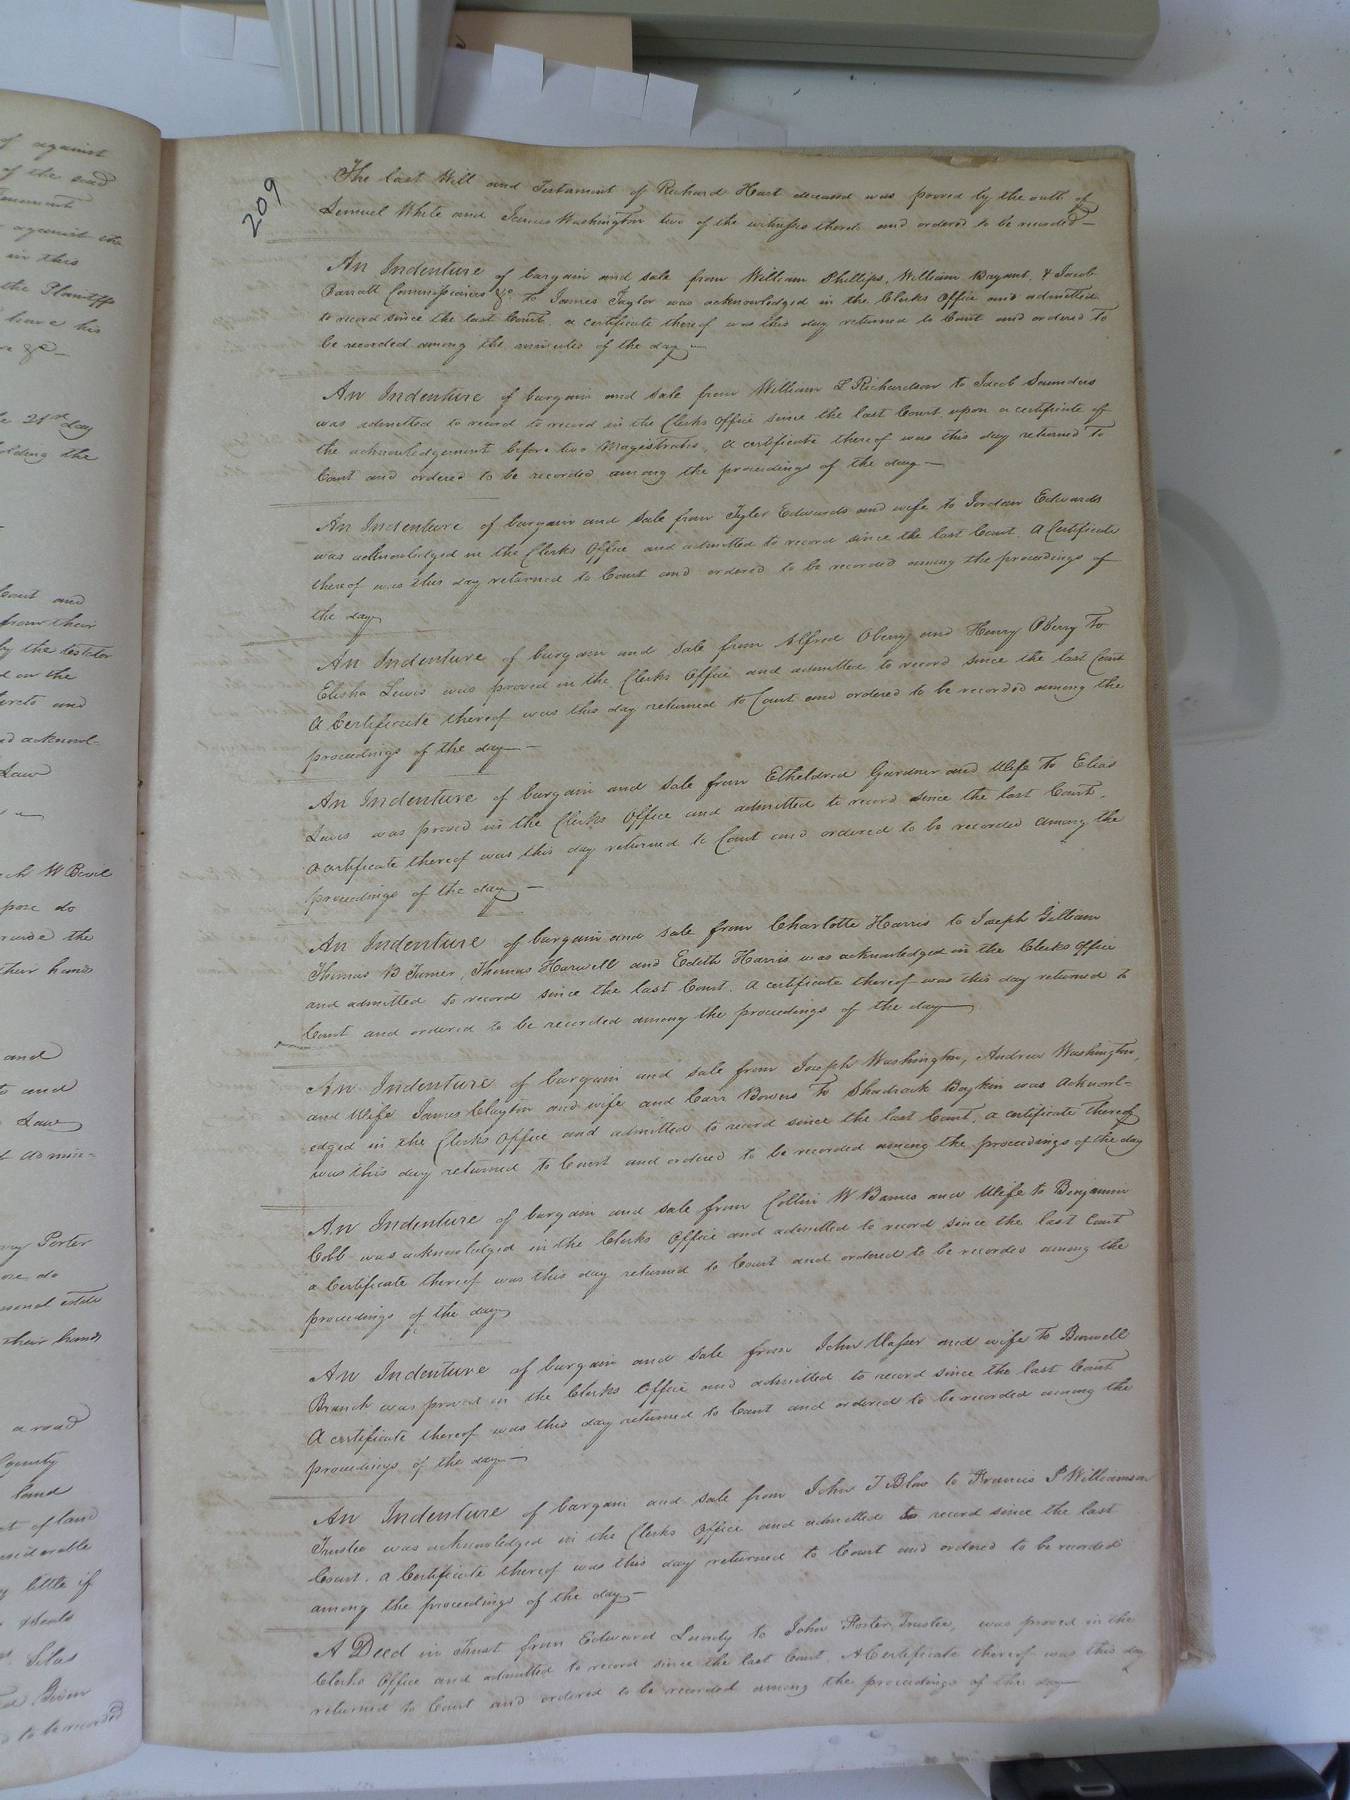 f against
of the said
against the
in this
the Plantiff
leave his
&c -
28th day
olding the
Court and
from their
by the testator
d on the
and
ed acknowl-
Law
h W
pose do
the
their hands
and
to and
Law
Porter
ose do
sonal estate
their hands
a road
County
land
t of land
nsiderable
little if
Silas
d to be recorded
209
The last Will and Testament of Richard Hart deceased was proved by the oath of
Lemuel White and James Washington two of the witnesses thereto and ordered to be recorded -
An Indenture of bargain and sale from William Phillips, William Bryant, & Jacob
Barrott Commissioners &c to James Taylor was acknowledged in the Clerks Office and admitted
to record since the last Court. a certificate thereof was this day returned to Court and ordered to
be recorded among the minutes of the day -
An Indenture of bargain and sale from William L Richardson to Jacob Saunders
was admitted to record to record in the Clerks Office since the last Court upon a certificate of
the acknowledgement before two Magistrates. A certificate thereof was this day returned to
Court and ordered to be recorded among the proceedings of the day -
An Indenture of bargain and sale from Tyler Edwards and wife to Jordan Edwards
was acknowledged in the Clerks Office and admitted to record since the last Court. A Certificate
thereof was this day returned to Court and ordered to be recorded among the proceedings of
the day
An Indenture of bargain and sale from Alfred Oberry and Henry Oberry to
Elisha Lewis was proved in the Clerks Office and admitted to record since the last Court
A Certificate thereof was this day returned to Court and ordered to be recorded among the
proceedings of the day -
An Indenture of bargain and sale from Etheldred Gardner and Wife to Elias
Lewis was proved in the Clerks Office and admitted to record since the last Court.
A certificate thereof was this day returned to Court and ordered to be recorded among the
proceedings of the day -
An Indenture of bargain and sale from Charlotte Harris to Joseph Gilliam
Thomas B Turner, Thomas Harwell and Edith Harris was acknowledged in the Clerks Office
and admitted to record since the last Court. A certificate thereof was this day returned to
Court and ordered to be recorded among the proceedings of the day
An Indenture of bargain and sale from Joseph Washington, Andrew Washington,
and Wife James Clayton and wife and Carr Bowers to Shadrack Boykin was acknowl-
edged in the Clerks Office and admitted to record since the last Court, a certificate thereof
was this day returned to Court and ordered to be recorded among the proceedings of the day
An Indenture of bargain and sale from Collin W Barnes and Wife to Benjamin
Cobb was acknowledged in the Clerks Office and admitted to record since the last Court
a Certificate thereof was this day returned to Court and ordered to be recorded among the
proceedings of the day
An Indenture of bargain and sale from John Vasser and wife to Burwell
Branch was proved in the Clerks Office and admitted to record since the last Court
A certificate thereof was this day returned to Court and ordered to be recorded among the
proceedings of the day -
An Indenture of bargain and sale from John T Blow to Francis P Williamson
Trustee was acknowledged in the Clerks Office and admitted to record since the last
Court. a Certificate thereof was this day returned to Court and ordered to be recorded
among the proceedings of the day -
A Deed in Trust from Edward Lundy to John Foster, Trustee, was proved in the
Clerks Office and admitted to record since the last Court. A Certificate thereof was this day
returned to Court and ordered to be recorded among the proceedings of the day